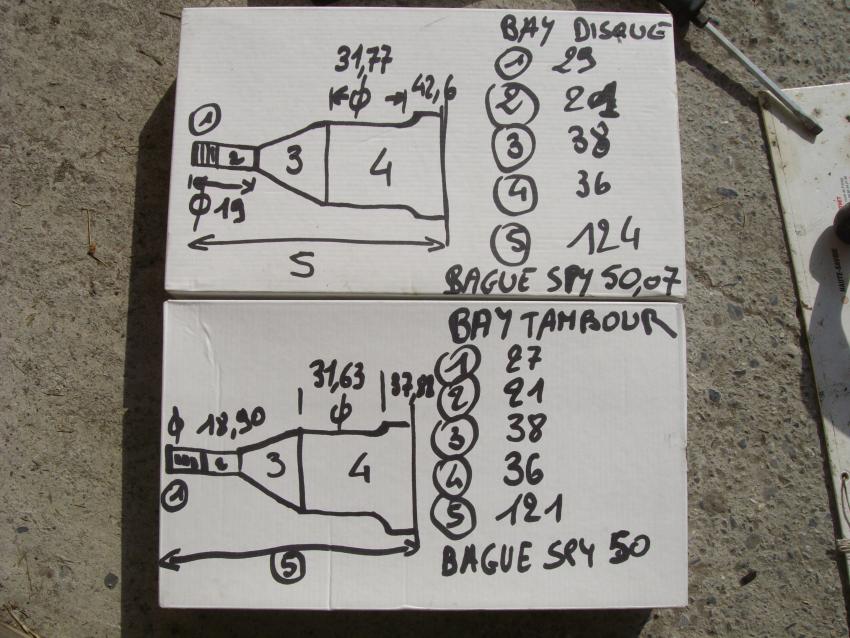 BAY DISQUE
① 29
② 21
③ 38
④ 36
⑤ 124
BAGUE SPY 50,07
31,77
Φ
42,6
①
2
3
4
Φ 19
5
BAY TAMBOUR
① 27
② 21
③ 38
④ 36
⑤ 121
BAGUE SPY 50
31,63
Φ
37,88
Φ 18,90
①
2
3
4
⑤